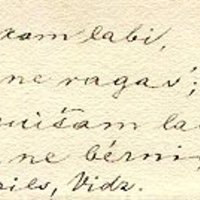 ram labi,
ne ragas';
šam la
, ne berni
pils, Vidz.